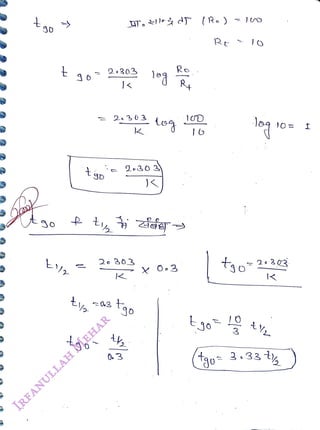 t90 → प्रा. सान्द्रता (R₀) = 100
Rt = 10
t90 = 2.303/K log R₀/Rt
= 2.303/K log 100/10 log 10 = 1
t90 = 2.303/K
t90 & t1/2 में संबंध →
t1/2 = 2.303/K × 0.3
t90 = 2.303/K
t1/2 = 0.3 t90
t90 = t1/2/0.3
t90 = 10/3 t1/2
t90 = 3.33 t1/2
IRFANULLAH MEHAR